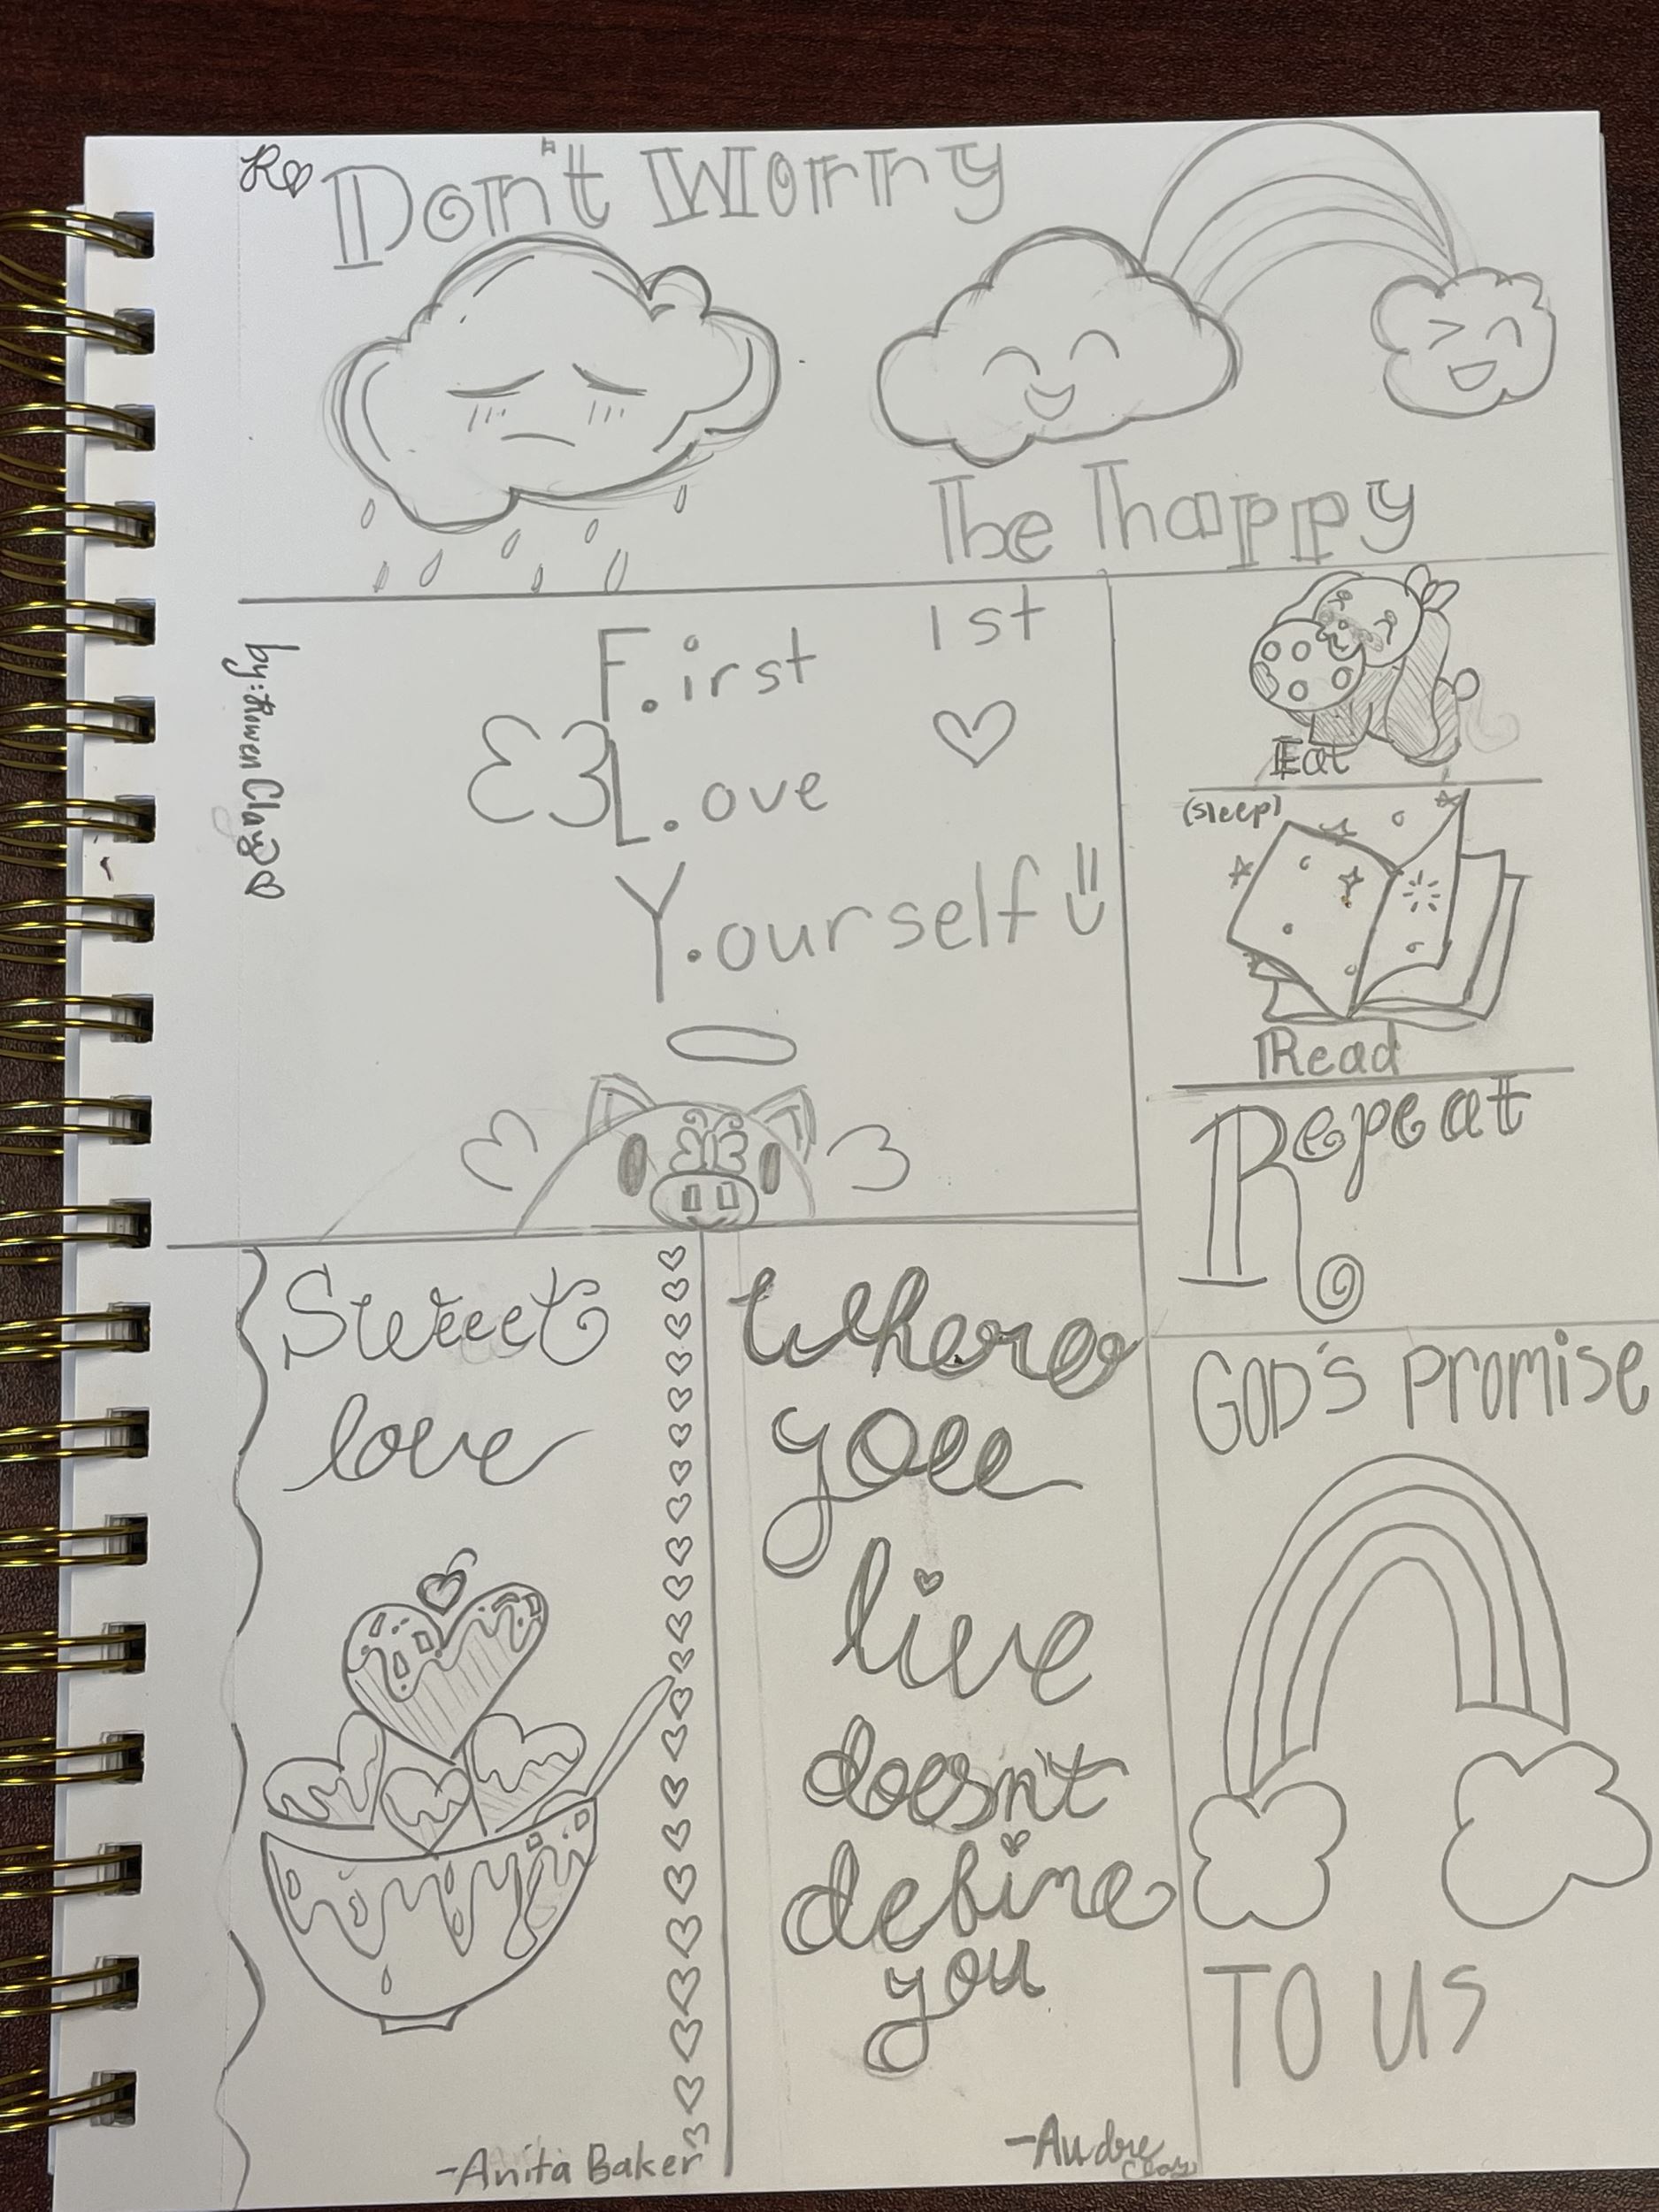 R
Don't Worry
Be happy
by: Rowan Clay
F.irst 1st
L.ove
Y.ourself
Eat
(sleep)
Read
Repeat
Sweet
love
-Anita Baker
where
you
live
doesn't
define
you
-Audre
Clay
GOD'S PROMISE
TO US